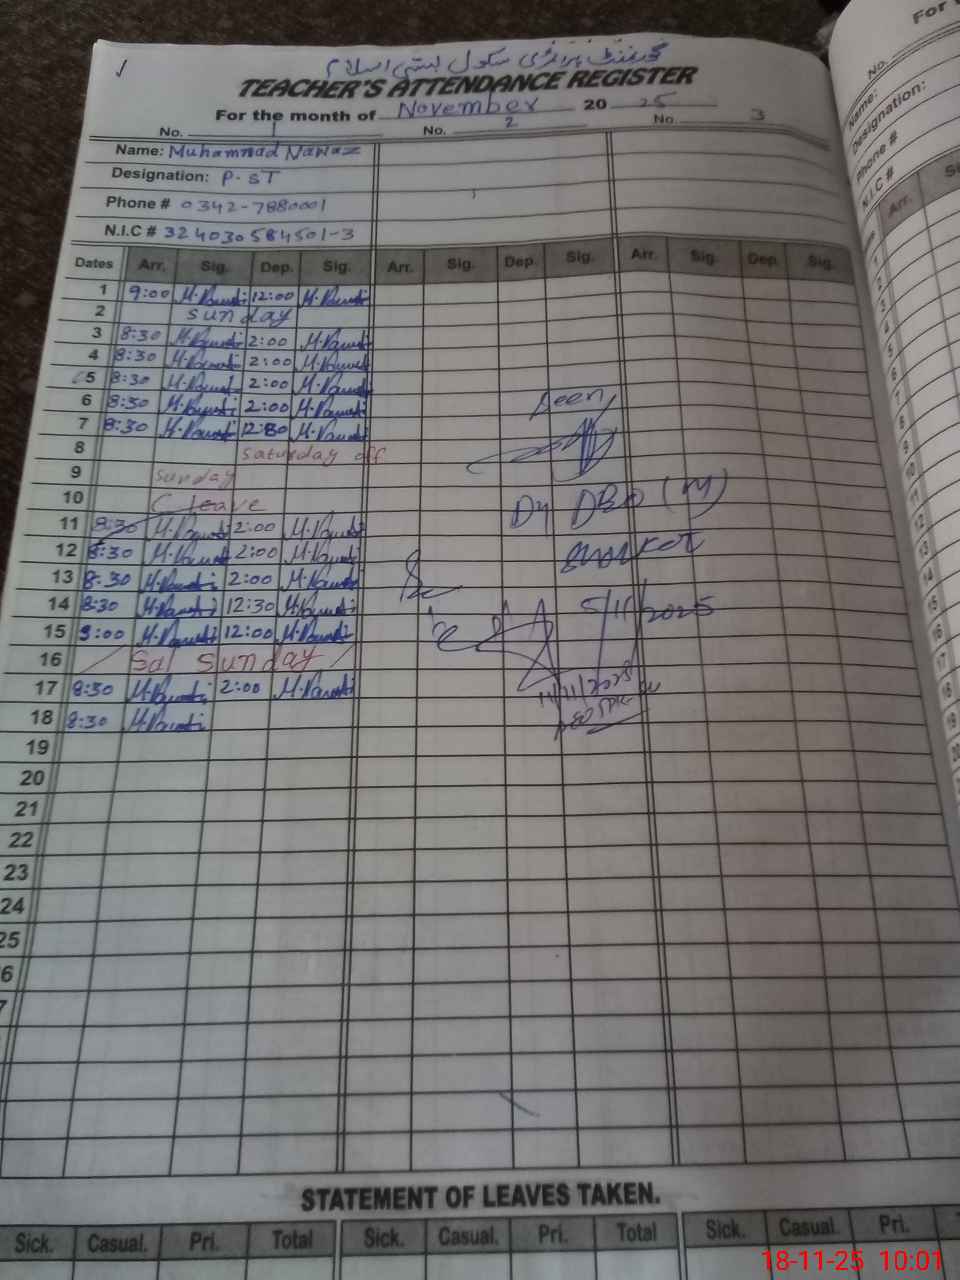 گورنمنٹ پرائمری سکول بستی اسلام
TEACHER'S ATTENDANCE REGISTER
For the month of November 20 25
No. 1 No. 2 No. 3
Name: Muhammad Nawaz
Designation: P.ST
Phone # 0342-7880001
N.I.C # 324030584501-3
Dates Arr. Sig. Dep. Sig. Arr. Sig. Dep. Sig. Arr. Sig. Dep. Sig.
1 9:00 12:00
2 Sunday
3 8:30 2:00
4 8:30 2:00
5 8:30 2:00
6 8:30 2:00
7 8:30 12:30
8 Saturday off
9 Sunday
10 C leave
11 8:30 2:00
12 8:30 2:00
13 8:30 2:00
14 8:30 12:30
15 9:00 12:00
16 Sunday
17 8:30 2:00
18 8:30
19
20
21
22
23
24
25
6
7
Seen
Dy DEO (M)
5/11/2025
14/11/2025
STATEMENT OF LEAVES TAKEN.
Sick. Casual. Pri. Total Sick. Casual. Pri. Total Sick. Casual. Pri.
For
No.
Name:
Designation:
Phone #
N.I.C #
Arr.
18-11-25 10:01